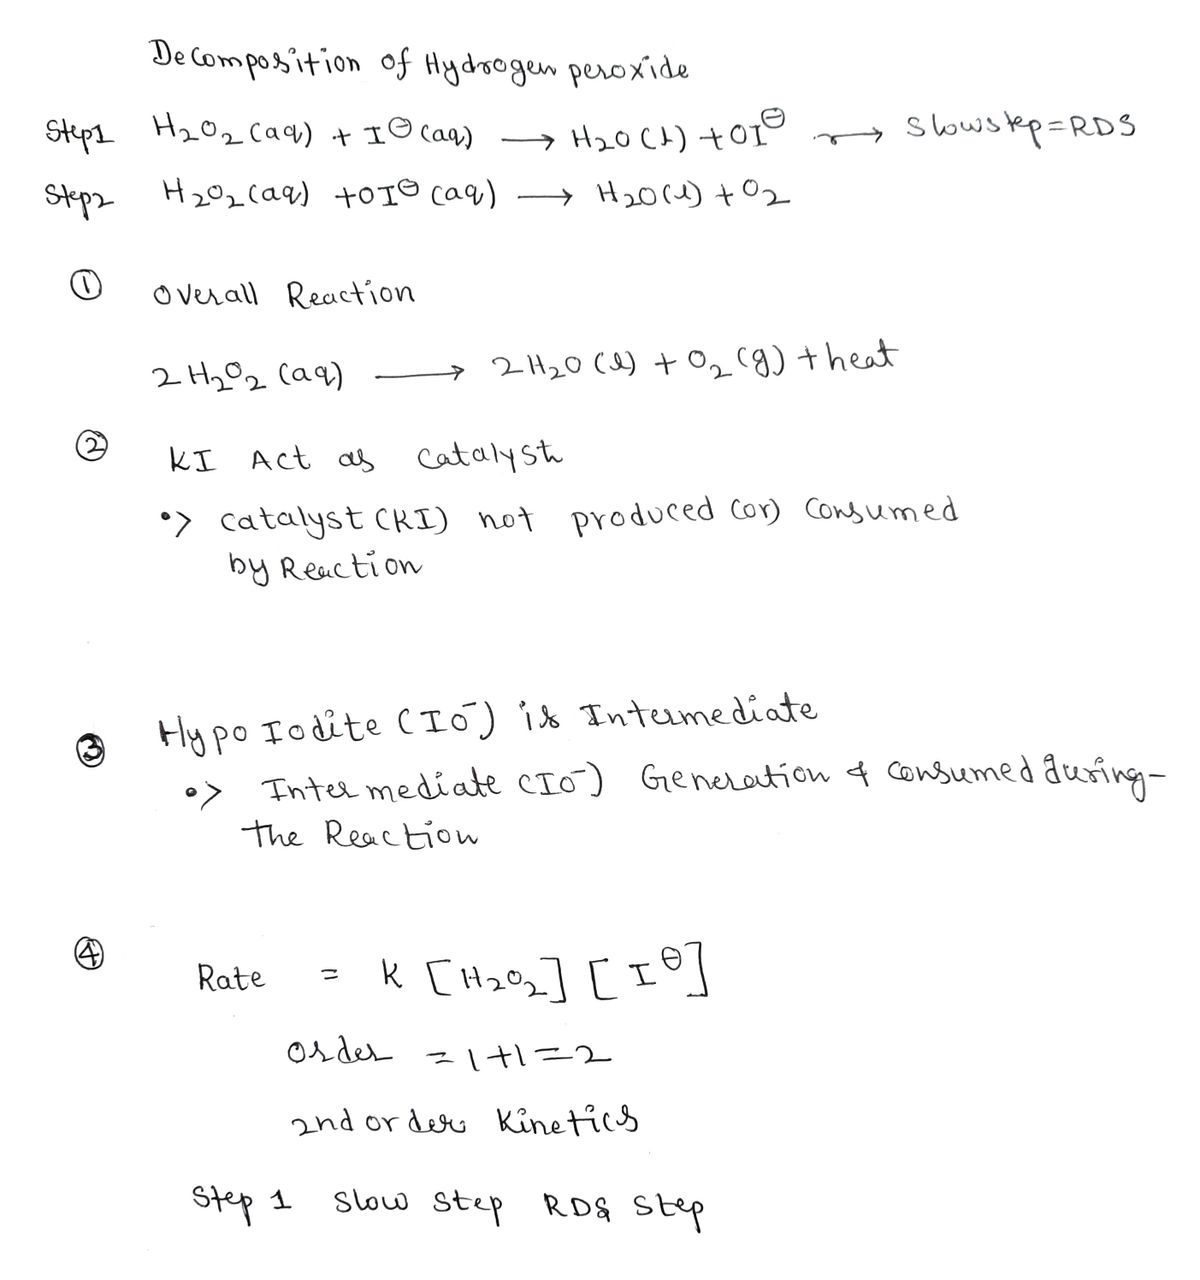 Decomposition of Hydrogen peroxide
Step1 H₂O₂ (aq) + I⊖ (aq) ⟶ H₂O (l) + OI⊖ ⟶ Slow step = RDS
Step2 H₂O₂ (aq) + OI⊖ (aq) ⟶ H₂O (l) + O₂
① Overall Reaction
2 H₂O₂ (aq) ⟶ 2 H₂O (l) + O₂ (g) + heat
② KI Act as Catalyst
•> catalyst (KI) not produced (or) Consumed
by Reaction
③ Hypo Iodite (IO⁻) is Intermediate
•> Intermediate (IO⁻) Generation & Consumed during-
the Reaction
④ Rate = K [H₂O₂] [I⊖]
Order = 1+1=2
2nd order Kinetics
Step 1 Slow Step RDS Step